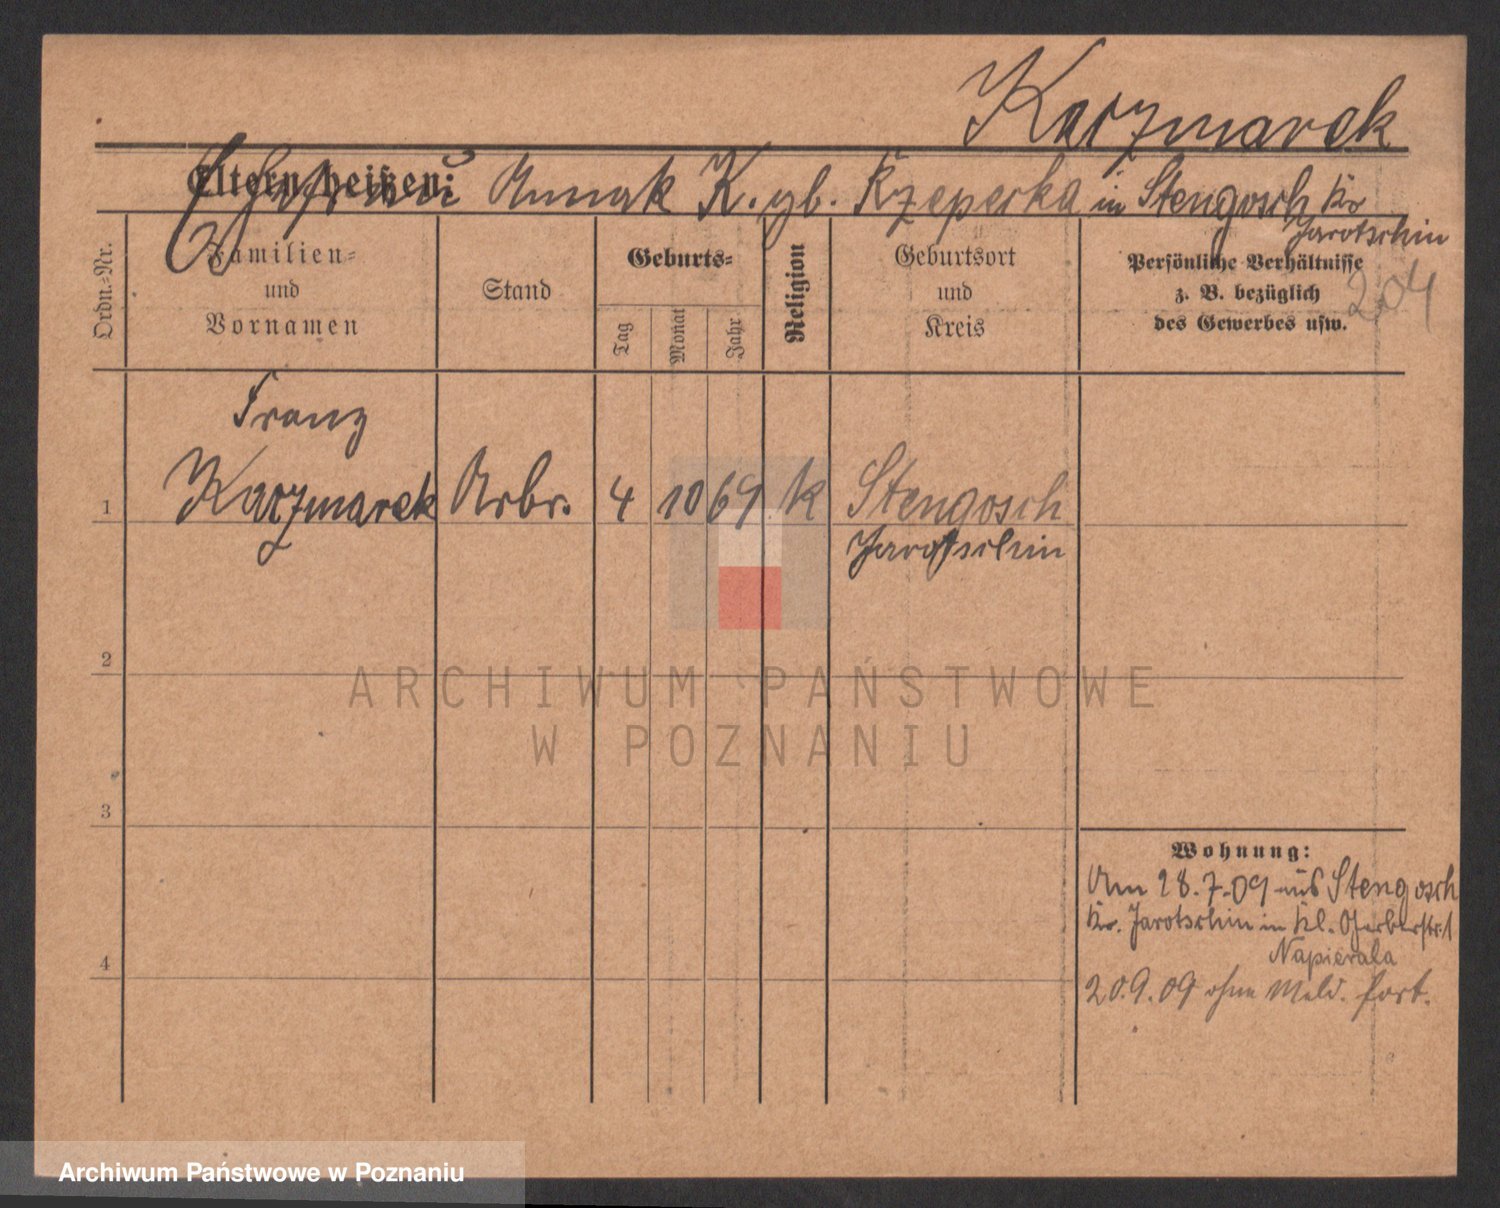 Kaczmarek
Eltern heißen: Annak K. gb. Rzepecka in Stengosch Kr
Jarotschin
Ordn.-Nr.
Familien-
und
Vornamen
Stand
Geburts-
Tag
Monat
Jahr
Religion
Geburtsort
und
Kreis
Persönliche Verhältnisse
z. B. bezüglich
des Gewerbes usw.
204
Franz
1 Kaczmarek Arbr. 4 10 69 k Stengosch
Jarotschin
2
3
4
Wohnung:
Am 28.7.09 aus Stengosch
Kr. Jarotschin in Kl. Gerberstr. 1
Napierala
20.9.09 ohne Meld. fort.
ARCHIWUM PAŃSTWOWE
W POZNANIU
Archiwum Państwowe w Poznaniu